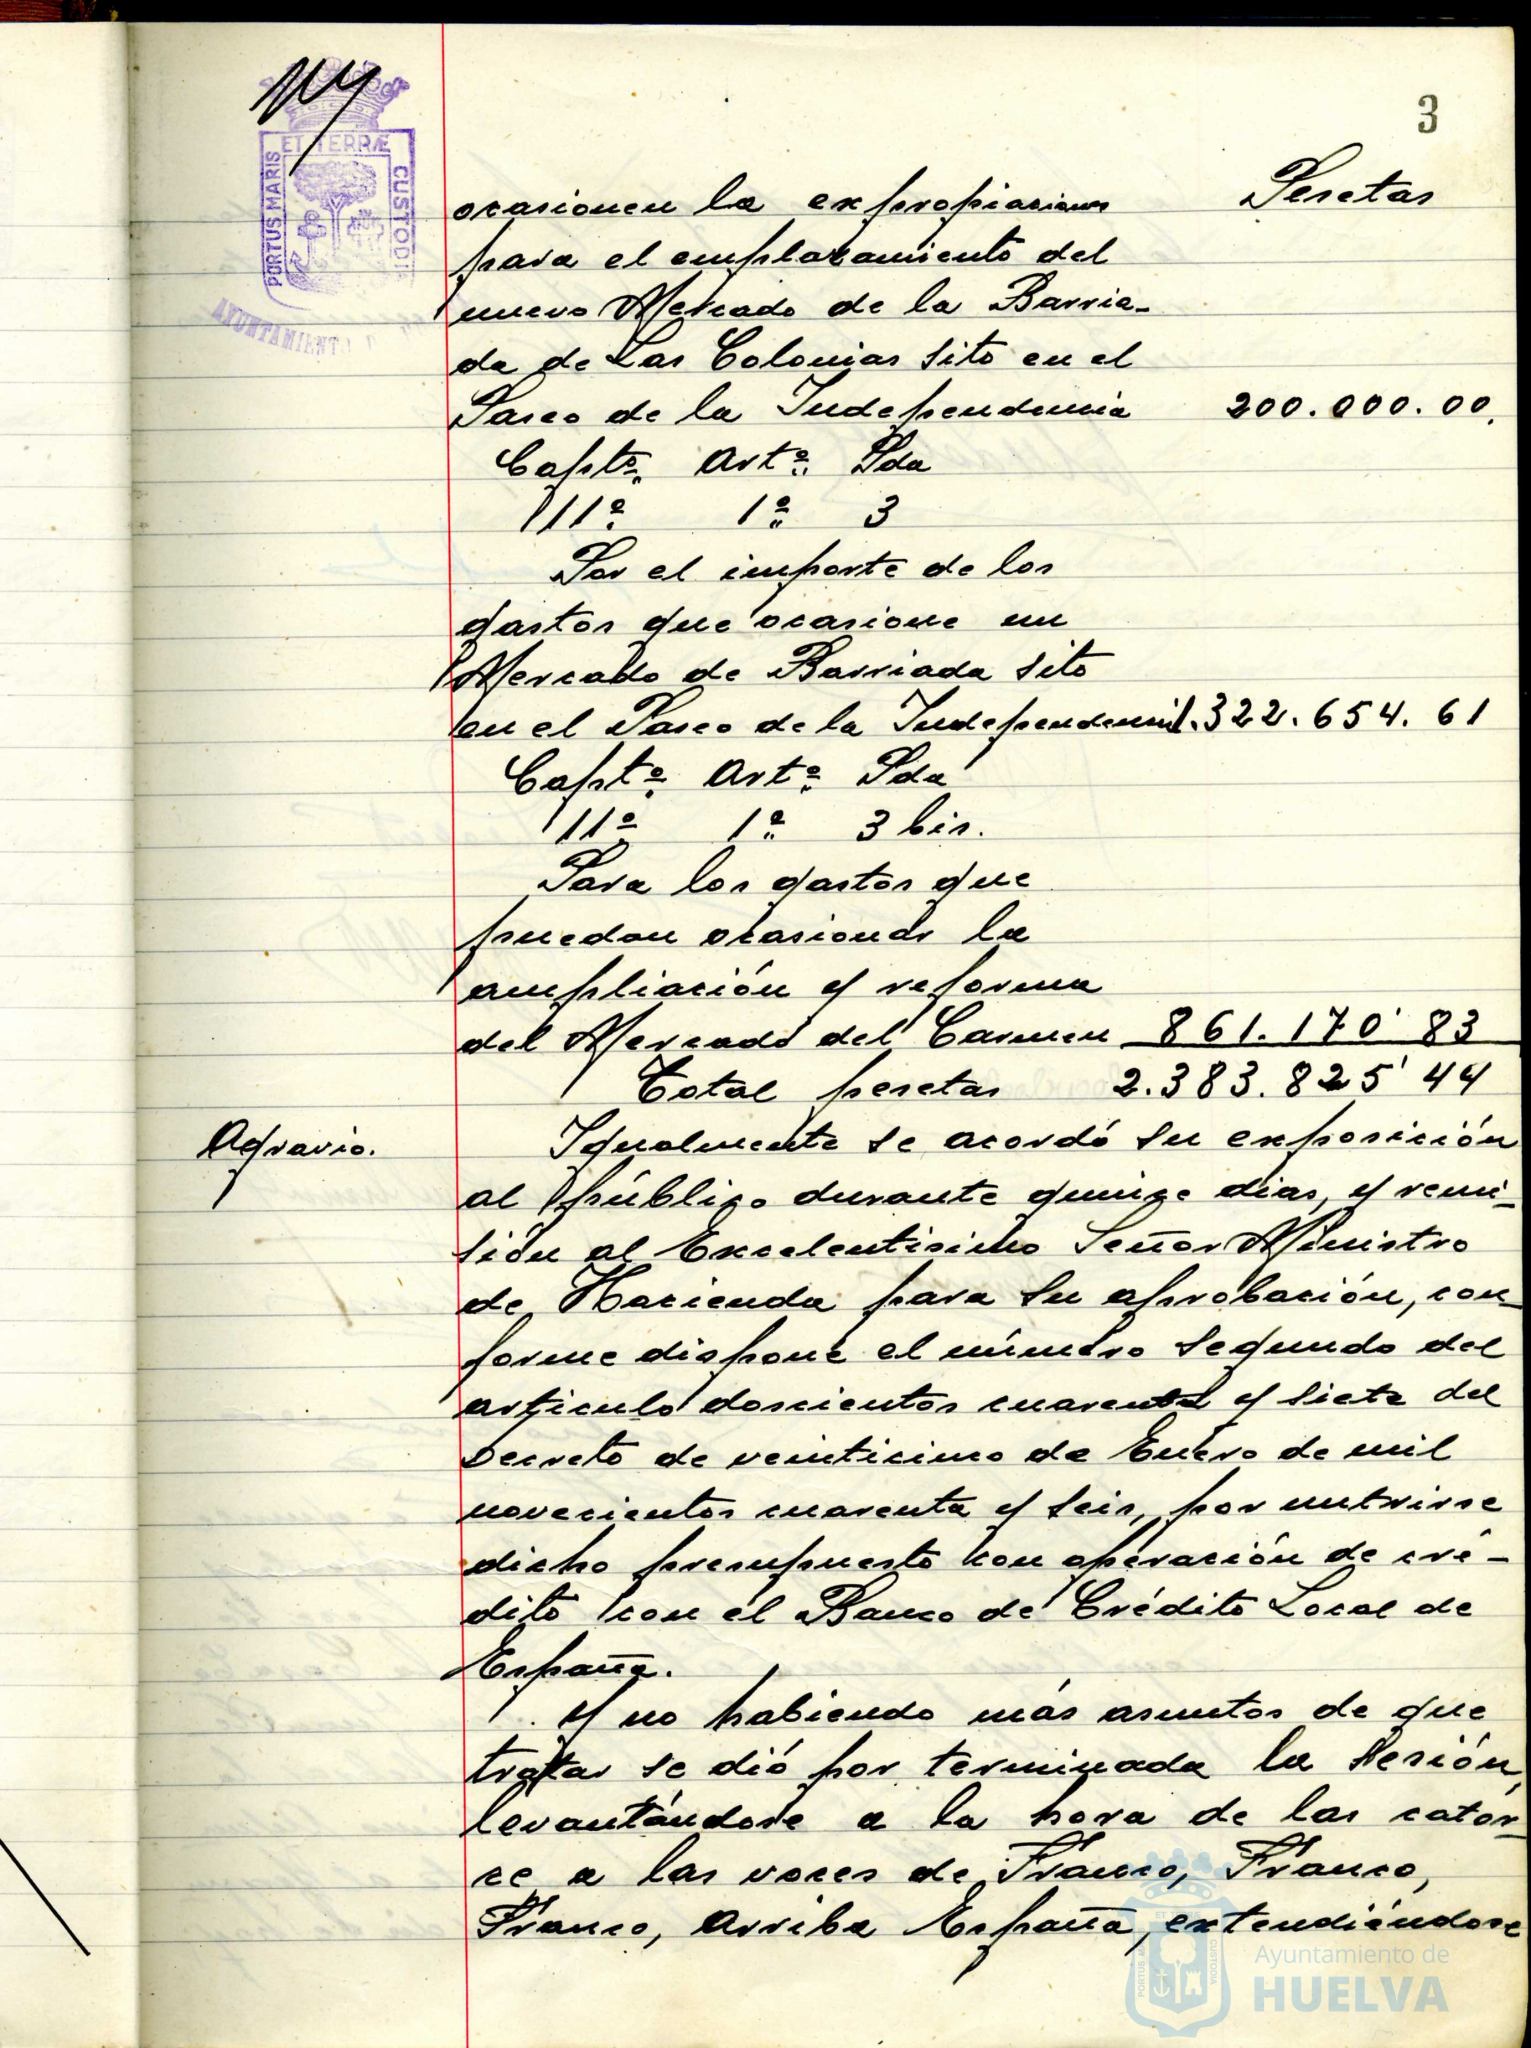 3
ET TERRÆ
PORTUS MARIS
CUSTODI
AYUNTAMIENTO
Pesetas
ocasionen la expropiaciones
para el emplazamiento del
nuevo Mercado de la Barria-
da de Las Colonias sito en el
Paseo de la Independencia 200.000.00.
Captº. Artº. Pda
11º 1º 3
Por el importe de los
gastos que ocasione un
Mercado de Barriada sito
en el Paseo de la Independencia 1.322.654.61
Captº. Artº. Pda
11º 1º 3 bis.
Para los gastos que
puedan ocasionar la
ampliación y reforma
del Mercado del Carmen 861.170'83
Total pesetas 2.383.825'44
Agravio.
Igualmente se acordó su exposición
al público durante quince dias, y remi-
sión al Excelentisimo Señor Ministro
de Hacienda para su aprobación, con-
forme dispone el número segundo del
articulo doscientos cuarenta y siete del
Decreto de veinticinco de Enero de mil
novecientos cuarenta y seis, por nutrirse
dicho presupuesto con operación de cré-
dito con el Banco de Crédito Local de
España.
Y no habiendo más asuntos de que
tratar se dió por terminada la sesión,
levantándose a la hora de las cator-
ce a las voces de Franco, Franco,
Franco, Arriba España, extendiéndose
Ayuntamiento de
HUELVA